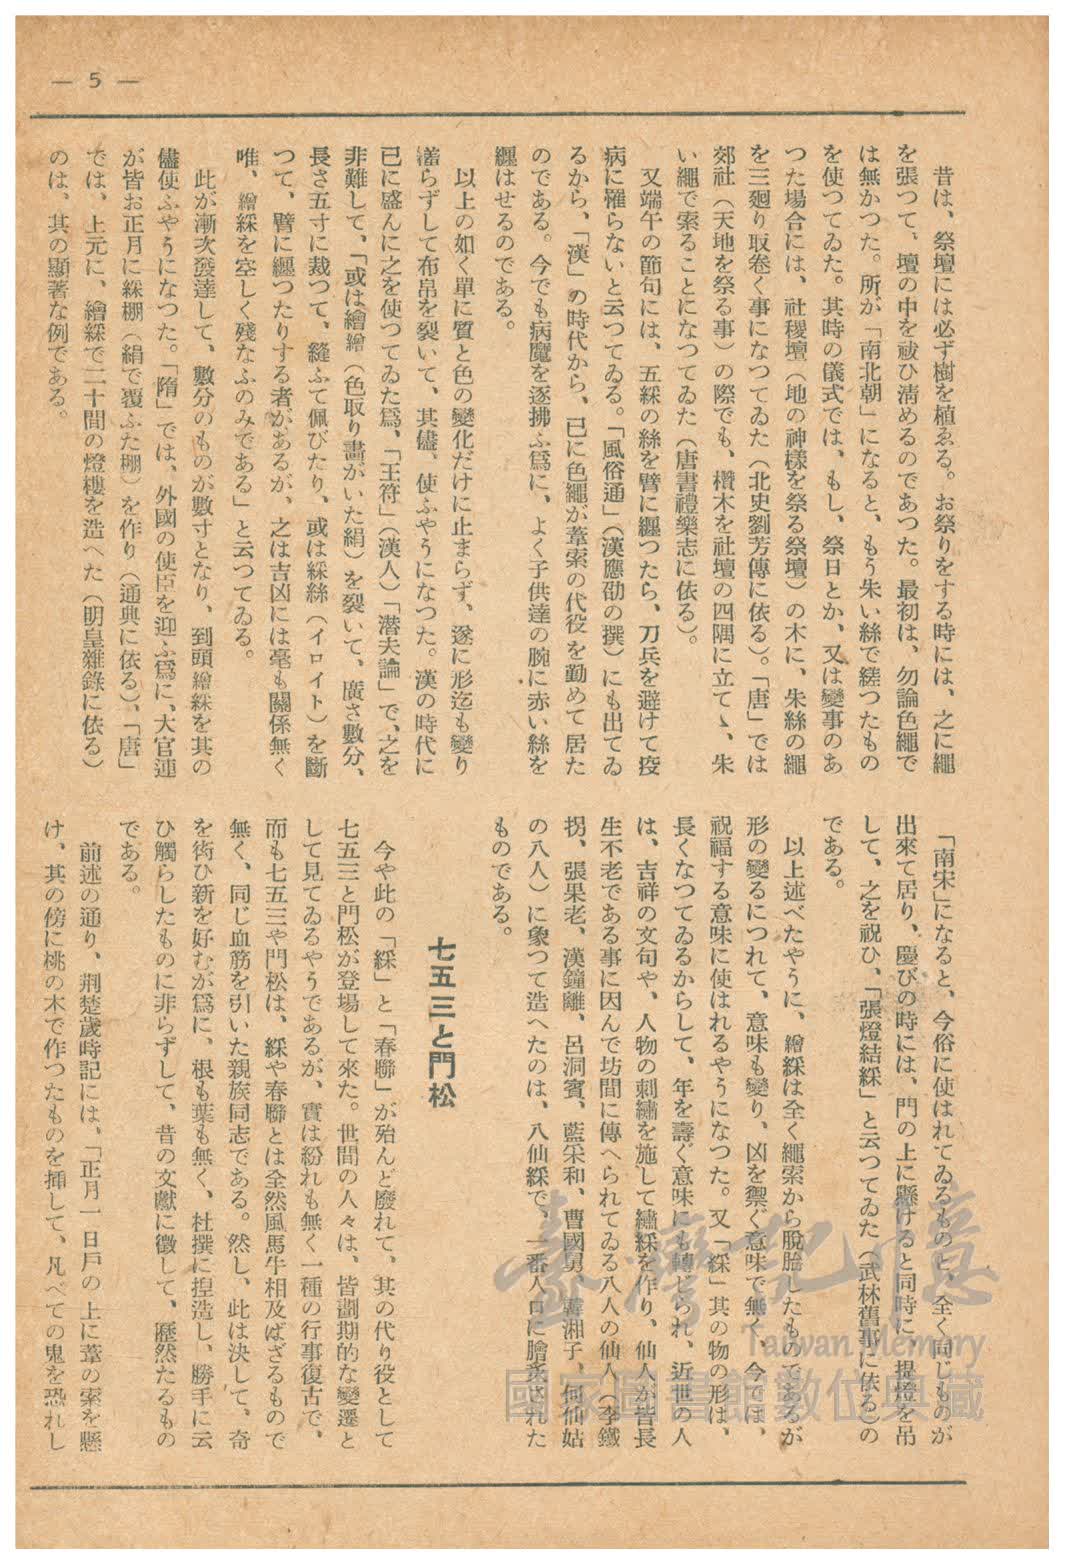 — 5 —
昔は、祭壇には必ず樹を植ゑる。お祭りをする時には、之に繩
を張つて、壇の中を祓ひ淸めるのであつた。最初は、勿論色繩で
は無かつた。所が「南北朝」になると、もう朱い絲で縒つたもの
を使つてゐた。其時の儀式では、もし、祭日とか、又は變事のあ
つた場合には、社稷壇（地の神樣を祭る祭壇）の木に、朱絲の繩
を三廻り取卷く事になつてゐた（北史劉芳傳に依る）。「唐」では
郊社（天地を祭る事）の際でも、櫕木を社壇の四隅に立てゝ、朱
い繩で索ることになつてゐた（唐書禮樂志に依る）。
又端午の節句には、五綵の絲を臂に纒つたら、刀兵を避けて疫
病に罹らないと云つてゐる。「風俗通」（漢應劭の撰）にも出てゐ
るから、「漢」の時代から、已に色繩が葦索の代役を勤めて居た
のである。今でも病魔を逐拂ふ爲に、よく子供達の腕に赤い絲を
纒はせるのである。
以上の如く單に質と色の變化だけに止まらず、遂に形迄も變り
濸らずして布帛を裂いて、其儘、使ふやうになつた。漢の時代に
已に盛んに之を使つてゐた爲、「王符」（漢人）「潛夫論」で、之を
非難して、「或は繪繒（色取り畵がいた絹）を裂いて、廣さ數分、
長さ五寸に裁つて、縫ふて佩びたり、或は綵絲（イロイト）を斷
つて、臂に纒つたりする者があるが、之は吉凶には毫も關係無く
唯、繒綵を空しく殘なふのみである」と云つてゐる。
此が漸次發達して、數分のものが數寸となり、到頭繒綵を其の
儘使ふやうになつた。「隋」では、外國の使臣を迎ふ爲に、大官連
が皆お正月に綵棚（絹で覆ふた棚）を作り（通典に依る）、「唐」
では、上元に、繒綵で二十間の燈樓を造へた（明皇雜錄に依る）
のは、其の顯著な例である。
「南宋」になると、今俗に使はれてゐるものと、全く同じものが
出來て居り、慶びの時には、門の上に懸けると同時に、提燈を吊
して、之を祝ひ、「張燈結綵」と云つてゐた（武林舊事に依る）の
である。
以上述べたやうに、繒綵は全く繩索から脫胎したものであるが
形の變るにつれて、意味も變り、凶を禦ぐ意味で無く、今では、
祝福する意味に使はれるやうになつた。又「綵」其の物の形は、
長くなつてゐるからして、年を壽ぐ意味にも轉じられ、近世の人
は、吉祥の文句や、人物の刺繡を施して繡綵を作り、仙人が皆長
生不老である事に因んで坊間に傳へられてゐる八人の仙人（李鐵
拐、張果老、漢鐘離、呂洞賓、藍采和、曹國舅、韓湘子、何仙姑
の八人）に象つて造へたのは、八仙綵で、一番人口に膾炙された
ものである。
七五三と門松
今や此の「綵」と「春聯」が殆んど廢れて、其の代り役として
七五三と門松が登場して來た。世間の人々は、皆劃期的な變遷と
して見てゐるやうであるが、實は紛れも無く一種の行事復古で、
而も七五三や門松は、綵や春聯とは全然風馬牛相及ばざるもので
無く、同じ血筋を引いた親族同志である。然し、此は決して、奇
を衒ひ新を好むが爲に、根も葉も無く、杜撰に揑造し、勝手に云
ひ觸らしたものに非らずして、昔の文獻に徵して、歷然たるもの
である。
前述の通り、荆楚歲時記には、「正月一日戶の上に葦の索を懸
け、其の傍に桃の木で作つたものを揷して、凡べての鬼を恐れし
臺灣記憶
Taiwan Memory
國家圖書館數位典藏